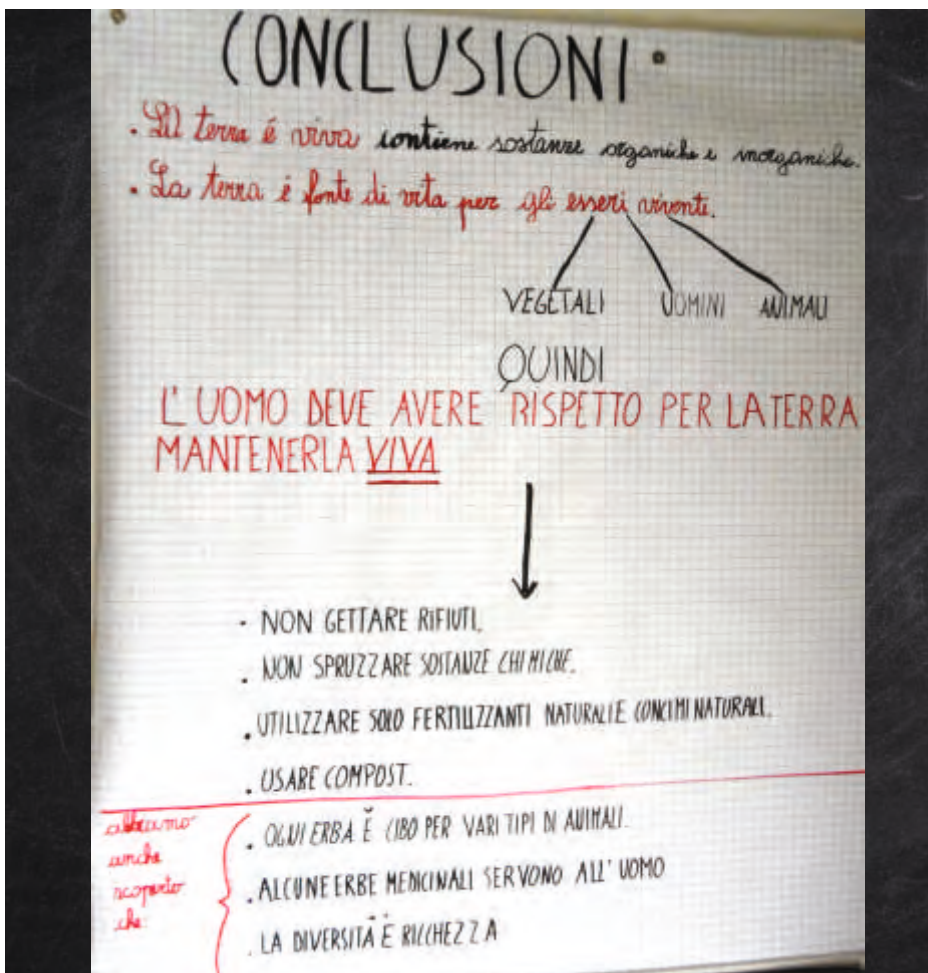 CONCLUSIONI
. La terra é viva contiene sostanze organiche e inorganiche.
. La terra é fonte di vita per gli esseri vivente.
VEGETALI UOMINI ANIMALI
QUINDI
L'UOMO DEVE AVERE RISPETTO PER LA TERRA
MANTENERLA VIVA
- NON GETTARE RIFIUTI.
. NON SPRUZZARE SOSTANZE CHIMICHE.
. UTILIZZARE SOLO FERTILIZZANTI NATURALI E CONCIMI NATURALI.
. USARE COMPOST.
abbiamo
anche
scoperto
che:
. OGNI ERBA È CIBO PER VARI TIPI DI ANIMALI.
. ALCUNE ERBE MEDICINALI SERVONO ALL'UOMO
. LA DIVERSITÀ È RICCHEZZA